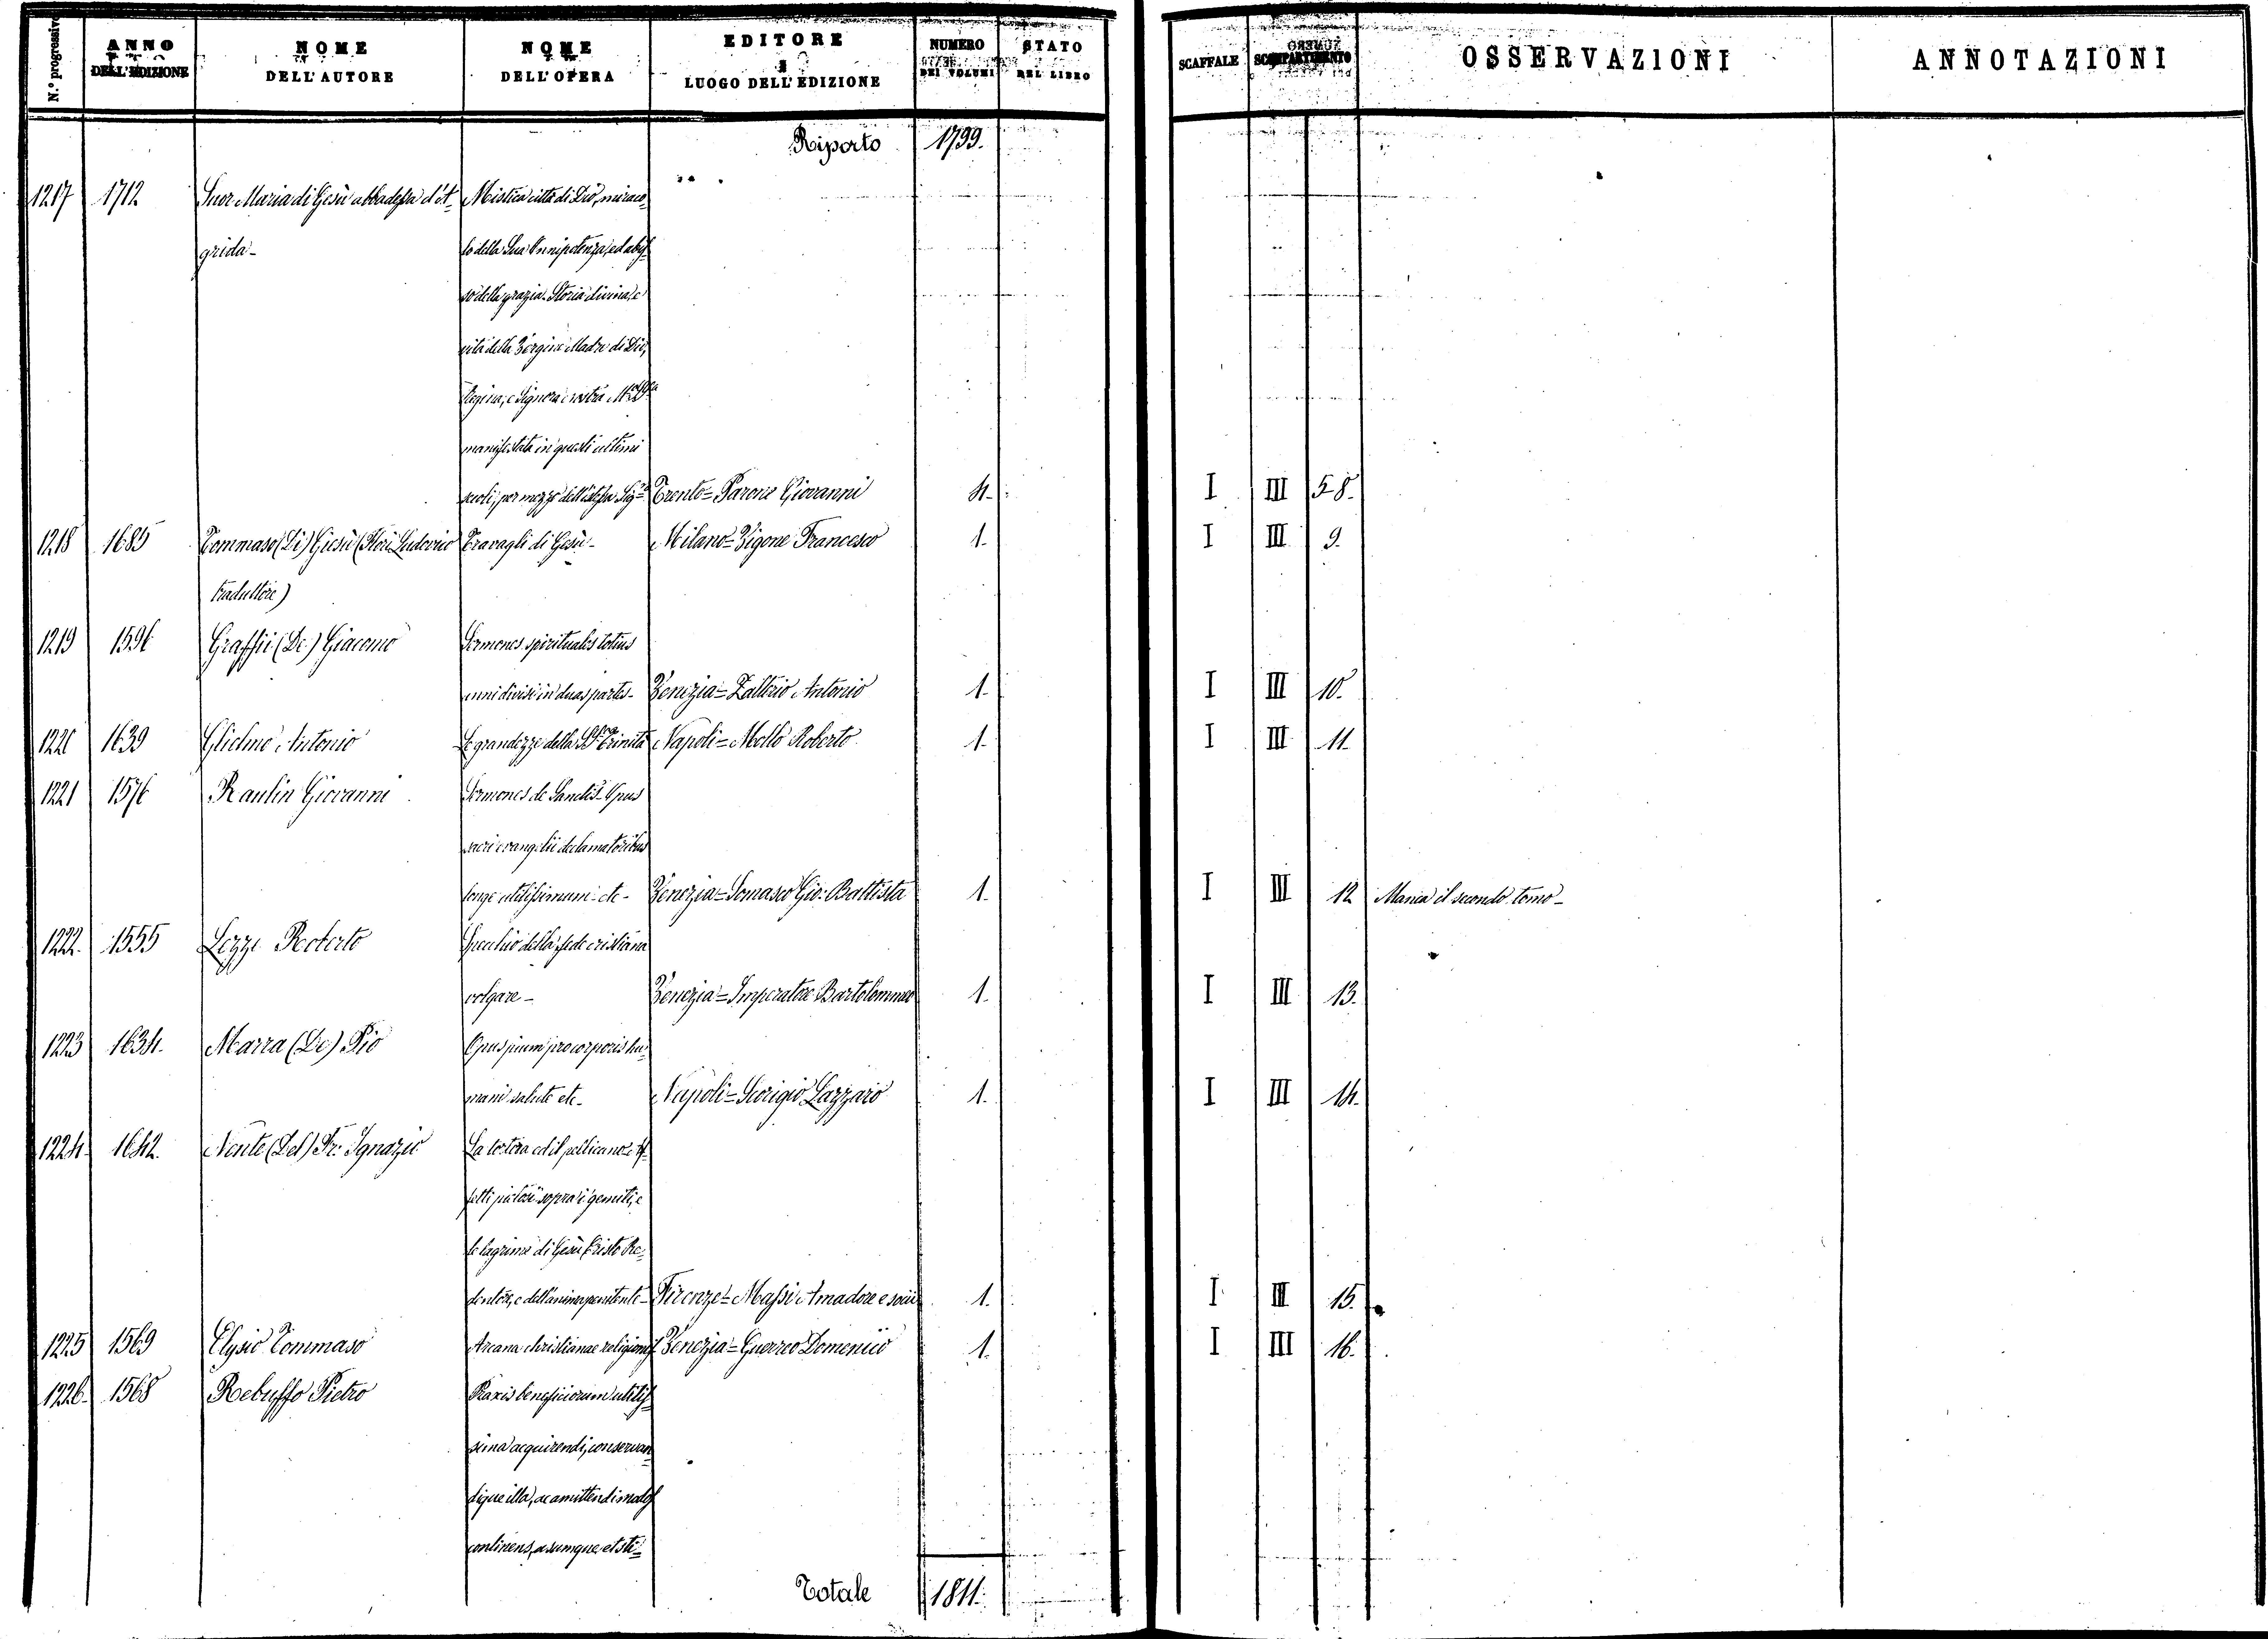 N.° progressivo
ANNO DELL'EDIZIONE
NOME DELL'AUTORE
NOME DELL'OPERA
EDITORE E LUOGO DELL'EDIZIONE
NUMERO DEI VOLUMI
STATO DEL LIBRO
SCAFFALE
SCOMPARTIMENTO
OSSERVAZIONI
ANNOTAZIONI
Riporto 1799.
1217 1712 Suor Maria di Gesù abbadessa d'A- Mistica città di Dio, miraco-
grida- lo della Sua Onnipotenza, ed abis-
so della grazia. Storia divina, e
vita della Vergine Madre di Dio,
Regina, e Signora nostra
manifestata in questi ultimi
secoli, per mezzo dell'istessa Sig.ra Trento= Parone Giovanni 4. I III 5-8.
1218 1685 Tommaso (Di) Giesù (Flori Ludovico Travagli di Gesù- Milano= Vigone Francesco 1. I III 9.
traduttore)
1219 1596 Graffii (De) Giacomo Sermones spirituales totius
anni divisi in duas partes- Venezia= Zalterio Antonio 1. I III 10.
1220 1639 Glielmo Antonio Le grandezze della SS.ma Trinità Napoli= Mollo Roberto 1. I III 11.
1221 1576 Raulin Giovanni Sermones de Sanctis- Opus
sacri evangelii declamatoribus
longe utilissimum- etc- Venezia= Somasco Gio: Battista 1. I III 12 Manca il secondo tomo-
1222. 1555 Lezze Roberto Specchio della fede cristiana
volgare- Venezia= Imperatore Bartolommeo 1. I III 13.
1223 1634. Marra (De) Pio Opus pium pro corporis hu-
mani salute etc- Napoli= Scorigio Lazzaro 1. I III 14.
1224. 1642. Nente (Del) Fr: Ignazio La tortora ed il pellicano= Af-
fetti pietosi sopra i gemiti, e
le lagrime di Gesù Cristo Re-
dentore, e dell'anima penitente- Firenze= Massi Amadore e socii 1. I III 15.
1225 1569 Elysio Tommaso Arcana christianae religionis Venezia= Guerreo Domenico 1. I III 16.
1226. 1568 Rebuffo Pietro Praxis beneficiorum utilis-
sima acquirendi, conservan-
dique illa, ac amittendi modos
continens,
Totale 1811.